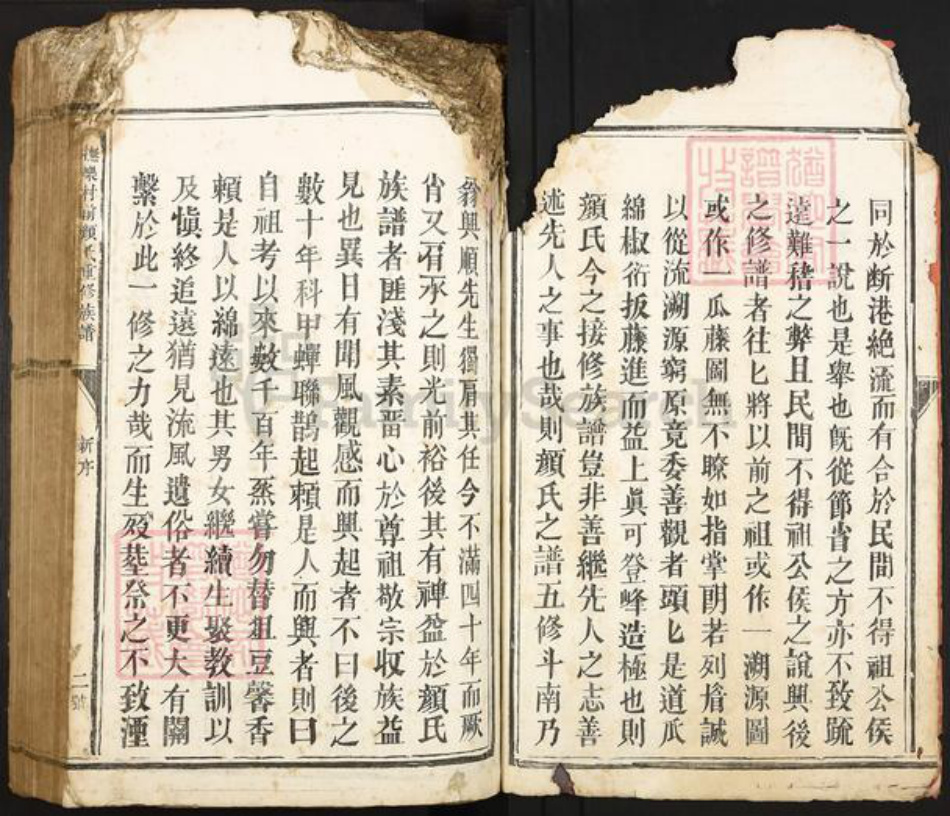 同於断港絶流而有合於民間不得祖公侯
之一說也是舉也旣從節省之方亦不致䟽
達難稽之弊且民間不得祖公侯之說興後
之修譜者往匕將以前之祖或作一溯源圖
或作一瓜藤圖無不瞭如指掌朗若列眉誠
以從流溯源窮原竟委善觀者頭匕是道瓜
綿椒衍扳藤進而益上眞可登峰造極也則
顏氏今之接修族譜豈非善繼先人之志善
述先人之事也哉則顏氏之譜五修斗南乃
翁興順先生獨肩其任今不滿四十年而厥
肖又有承之則光前裕後其有裨益於顏氏
族譜者匪淺其素畱心於尊祖敬宗收族益
見也異日有聞風觀感而興起者不曰後之
數十年科甲蟬聯鵲起頼是人而興者則曰
自祖考以來數千百年蒸嘗勿替俎豆馨香
頼是人以綿遠也其男女繼續生聚教訓以
及愼終追遠猶見流風遺俗者不更大有關
繫於此一修之力哉而生殁塟祭之不致湮
樂村前顏氏重修族譜
新序
二號
FamilySearch